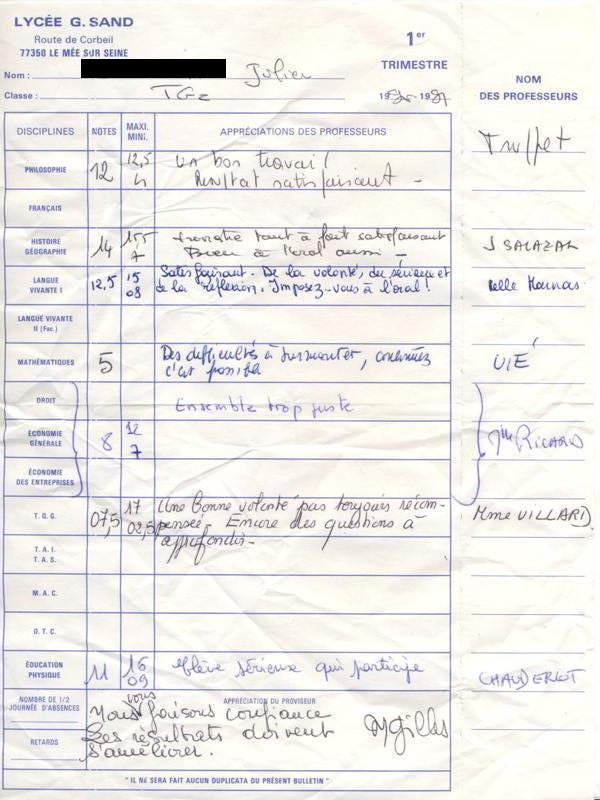 LYCÉE G. SAND
Route de Corbeil
77350 LE MÉE SUR SEINE
1er TRIMESTRE
Nom : Julien
Classe : TG2
19 - 19
NOM DES PROFESSEURS
DISCIPLINES NOTES MAXI. MINI. APPRÉCIATIONS DES PROFESSEURS
PHILOSOPHIE 12 12,5 4 Un bon travail Truffet
Résultat satisfaisant -
FRANÇAIS
HISTOIRE GÉOGRAPHIE 14 15,5 7 trimestre tout à fait satisfaisant J SALAZAR
Bien à l'oral aussi -
LANGUE VIVANTE I 12,5 15 08 Satisfaisant. De la volonté, du sérieux et
de la réflexion. Imposez-vous à l'oral !
LANGUE VIVANTE II (Fac.)
MATHÉMATIQUES 5 Des difficultés à surmonter, continuez VIÉ
c'est possible
DROIT Ensemble trop juste
ÉCONOMIE GÉNÉRALE 8 12 7 Mme RICARD
ÉCONOMIE DES ENTREPRISES
T. Q. G. 07,5 17 02,5 Une bonne volonté pas toujours récom- Mme VILLARD
pensée - Encore des questions à
approfondir -
T. A. I.
T. A. S.
M. A. C.
O. T. C.
ÉDUCATION PHYSIQUE 11 16 09 élève sérieux qui participe
NOMBRE DE 1/2 JOURNÉE D'ABSENCES
RETARDS
APPRÉCIATION DU PROVISEUR
Nous vous faisons confiance
Les résultats doivent
s'améliorer.
" IL NE SERA FAIT AUCUN DUPLICATA DU PRÉSENT BULLETIN "